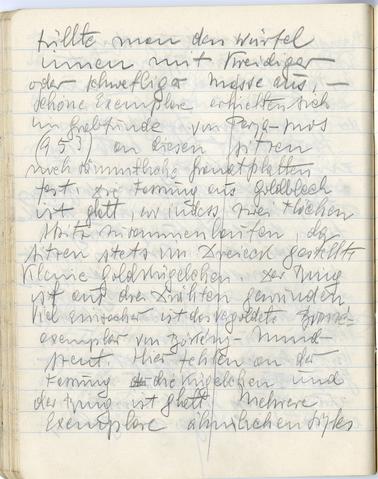 füllte man den Würfel
innen mit Kreidiger
oder schwefliger Masse aus, —
schöne Exemplare erhielten sich
im Grabfunde von
(953) an diesen sitzen
noch sämmtliche Granatplatten
fest. Die Fassung aus Goldblech
ist glatt, wo indess zwei Flächen
zusammenlaufen, da
sitzen stets im Dreieck gestellte
kleine Goldkügelchen. Der Ring
ist aus drei Drähten gewunden
viel einfacher ist das vegoldete
exemplar von
Hier fehlen an der
Fassung die Kügelchen und
der Ring ist glatt. Mehrere
Exemplare ähnlichen Styles